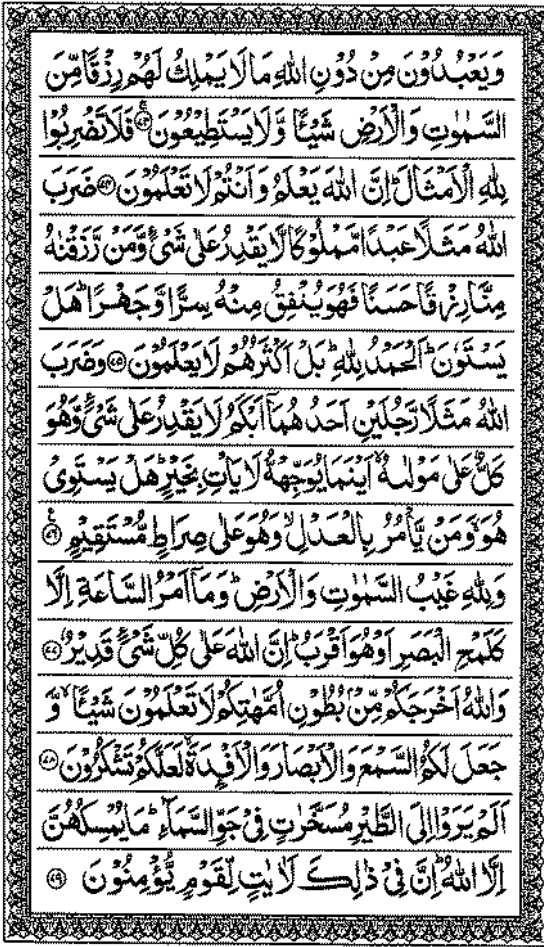 وَيَعْبُدُوْنَ مِنْ دُوْنِ اللّٰهِ مَا لَا يَمْلِكُ لَهُمْ رِزْقًا مِّنَ
السَّمٰوٰتِ وَالْاَرْضِ شَيْـًٔا وَّلَا يَسْتَطِيْعُوْنَ ۚ‏﴿۷۳﴾ فَلَا تَضْرِبُوْا
لِلّٰهِ الْاَمْثَالَ ؕ اِنَّ اللّٰهَ يَعْلَمُ وَاَنْتُمْ لَا تَعْلَمُوْنَ ﴿۷۴﴾ ضَرَبَ
اللّٰهُ مَثَلًا عَبْدًا مَّمْلُوْكًا لَّا يَقْدِرُ عَلٰى شَىْءٍ وَّمَنْ رَّزَقْنٰهُ
مِنَّا رِزْقًا حَسَنًا فَهُوَ يُنْفِقُ مِنْهُ سِرًّا وَّجَهْرًا ؕ هَلْ
يَسْتَوٗنَ ؕ اَلْحَمْدُ لِلّٰهِ ؕ بَلْ اَكْثَرُهُمْ لَا يَعْلَمُوْنَ ﴿۷۵﴾ وَضَرَبَ
اللّٰهُ مَثَلًا رَّجُلَيْنِ اَحَدُهُمَاۤ اَبْكَمُ لَا يَقْدِرُ عَلٰى شَىْءٍ وَّهُوَ
كَلٌّ عَلٰى مَوْلٰىهُ ۙ اَيْنَمَا يُوَجِّهْهُّ لَا يَاْتِ بِخَيْرٍ ؕ هَلْ يَسْتَوِىْ
هُوَ ۙ وَمَنْ يَّاْمُرُ بِالْعَدْلِ ۙ وَهُوَ عَلٰى صِرَاطٍ مُّسْتَقِيْمٍ ﴿۷۶﴾
وَلِلّٰهِ غَيْبُ السَّمٰوٰتِ وَالْاَرْضِ ؕ وَمَاۤ اَمْرُ السَّاعَةِ اِلَّا
كَلَمْحِ الْبَصَرِ اَوْ هُوَ اَقْرَبُ ؕ اِنَّ اللّٰهَ عَلٰى كُلِّ شَىْءٍ قَدِيْرٌ ﴿۷۷﴾
وَاللّٰهُ اَخْرَجَكُمْ مِّنْۢ بُطُوْنِ اُمَّهٰتِكُمْ لَا تَعْلَمُوْنَ شَيْـًٔا ۙ وَّ
جَعَلَ لَكُمُ السَّمْعَ وَالْاَبْصَارَ وَالْاَفْـِٕدَةَ ۙ لَعَلَّكُمْ تَشْكُرُوْنَ ﴿۷۸﴾
اَلَمْ يَرَوْا اِلَى الطَّيْرِ مُسَخَّرٰتٍ فِىْ جَوِّ السَّمَآءِ ؕ مَا يُمْسِكُهُنَّ
اِلَّا اللّٰهُ ؕ اِنَّ فِىْ ذٰلِكَ لَاٰيٰتٍ لِّقَوْمٍ يُّؤْمِنُوْنَ ﴿۷۹﴾